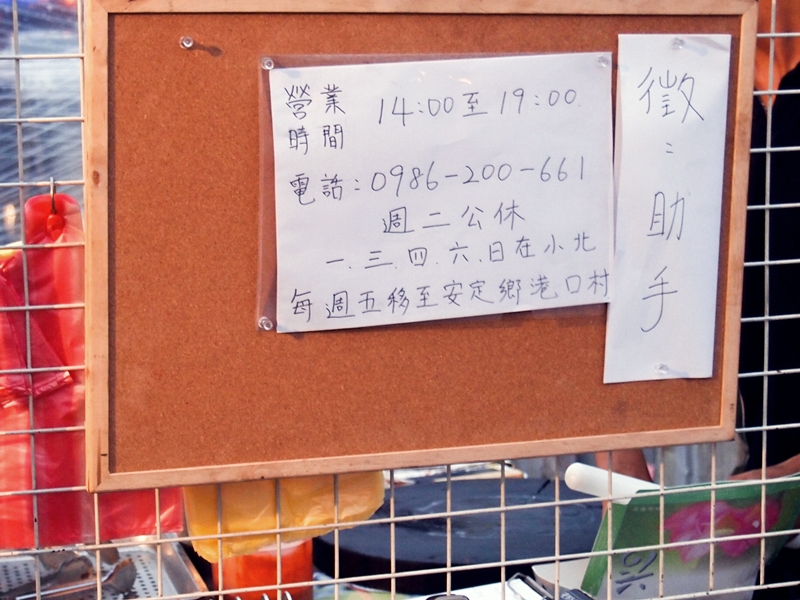 營業時間 14:00至19:00
電話:0986-200-661
週二公休
一、三、四、六、日在小北
每週五移至安定鄉港口村
徵:助手